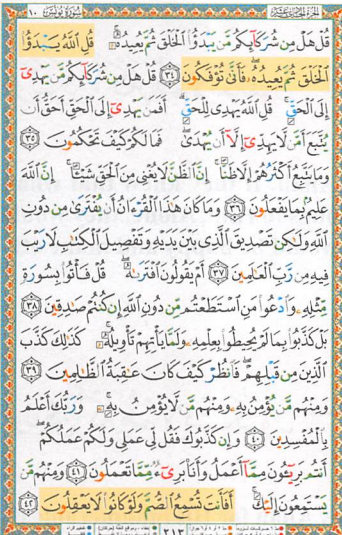 الجزء الحادي عشر سورة يونس ١٠
قُلْ هَلْ مِن شُرَكَآئِكُم مَّن يَبْدَؤُا۟ ٱلْخَلْقَ ثُمَّ يُعِيدُهُۥ ۚ قُلِ ٱللَّهُ يَبْدَؤُا۟
ٱلْخَلْقَ ثُمَّ يُعِيدُهُۥ ۖ فَأَنَّىٰ تُؤْفَكُونَ ٣٤ قُلْ هَلْ مِن شُرَكَآئِكُم مَّن يَهْدِىٓ
إِلَى ٱلْحَقِّ ۚ قُلِ ٱللَّهُ يَهْدِى لِلْحَقِّ ۗ أَفَمَن يَهْدِىٓ إِلَى ٱلْحَقِّ أَحَقُّ أَن
يُتَّبَعَ أَمَّن لَّا يَهِدِّىٓ إِلَّآ أَن يُهْدَىٰ ۖ فَمَا لَكُمْ كَيْفَ تَحْكُمُونَ ٣٥
وَمَا يَتَّبِعُ أَكْثَرُهُمْ إِلَّا ظَنًّا ۚ إِنَّ ٱلظَّنَّ لَا يُغْنِى مِنَ ٱلْحَقِّ شَيْـًٔا ۚ إِنَّ ٱللَّهَ
عَلِيمٌۢ بِمَا يَفْعَلُونَ ٣٦ وَمَا كَانَ هَٰذَا ٱلْقُرْءَانُ أَن يُفْتَرَىٰ مِن دُونِ
ٱللَّهِ وَلَٰكِن تَصْدِيقَ ٱلَّذِى بَيْنَ يَدَيْهِ وَتَفْصِيلَ ٱلْكِتَٰبِ لَا رَيْبَ
فِيهِ مِن رَّبِّ ٱلْعَٰلَمِينَ ٣٧ أَمْ يَقُولُونَ ٱفْتَرَىٰهُ ۖ قُلْ فَأْتُوا۟ بِسُورَةٍ
مِّثْلِهِۦ وَٱدْعُوا۟ مَنِ ٱسْتَطَعْتُم مِّن دُونِ ٱللَّهِ إِن كُنتُمْ صَٰدِقِينَ ٣٨
بَلْ كَذَّبُوا۟ بِمَا لَمْ يُحِيطُوا۟ بِعِلْمِهِۦ وَلَمَّا يَأْتِهِمْ تَأْوِيلُهُۥ ۚ كَذَٰلِكَ كَذَّبَ
ٱلَّذِينَ مِن قَبْلِهِمْ ۖ فَٱنظُرْ كَيْفَ كَانَ عَٰقِبَةُ ٱلظَّٰلِمِينَ ٣٩
وَمِنْهُم مَّن يُؤْمِنُ بِهِۦ وَمِنْهُم مَّن لَّا يُؤْمِنُ بِهِۦ ۚ وَرَبُّكَ أَعْلَمُ
بِٱلْمُفْسِدِينَ ٤٠ وَإِن كَذَّبُوكَ فَقُل لِّى عَمَلِى وَلَكُمْ عَمَلُكُمْ ۖ
أَنتُم بَرِيٓـُٔونَ مِمَّآ أَعْمَلُ وَأَنَا۠ بَرِىٓءٌ مِّمَّا تَعْمَلُونَ ٤١ وَمِنْهُم مَّن
يَسْتَمِعُونَ إِلَيْكَ ۚ أَفَأَنتَ تُسْمِعُ ٱلصُّمَّ وَلَوْ كَانُوا۟ لَا يَعْقِلُونَ ٤٢
٢١٣